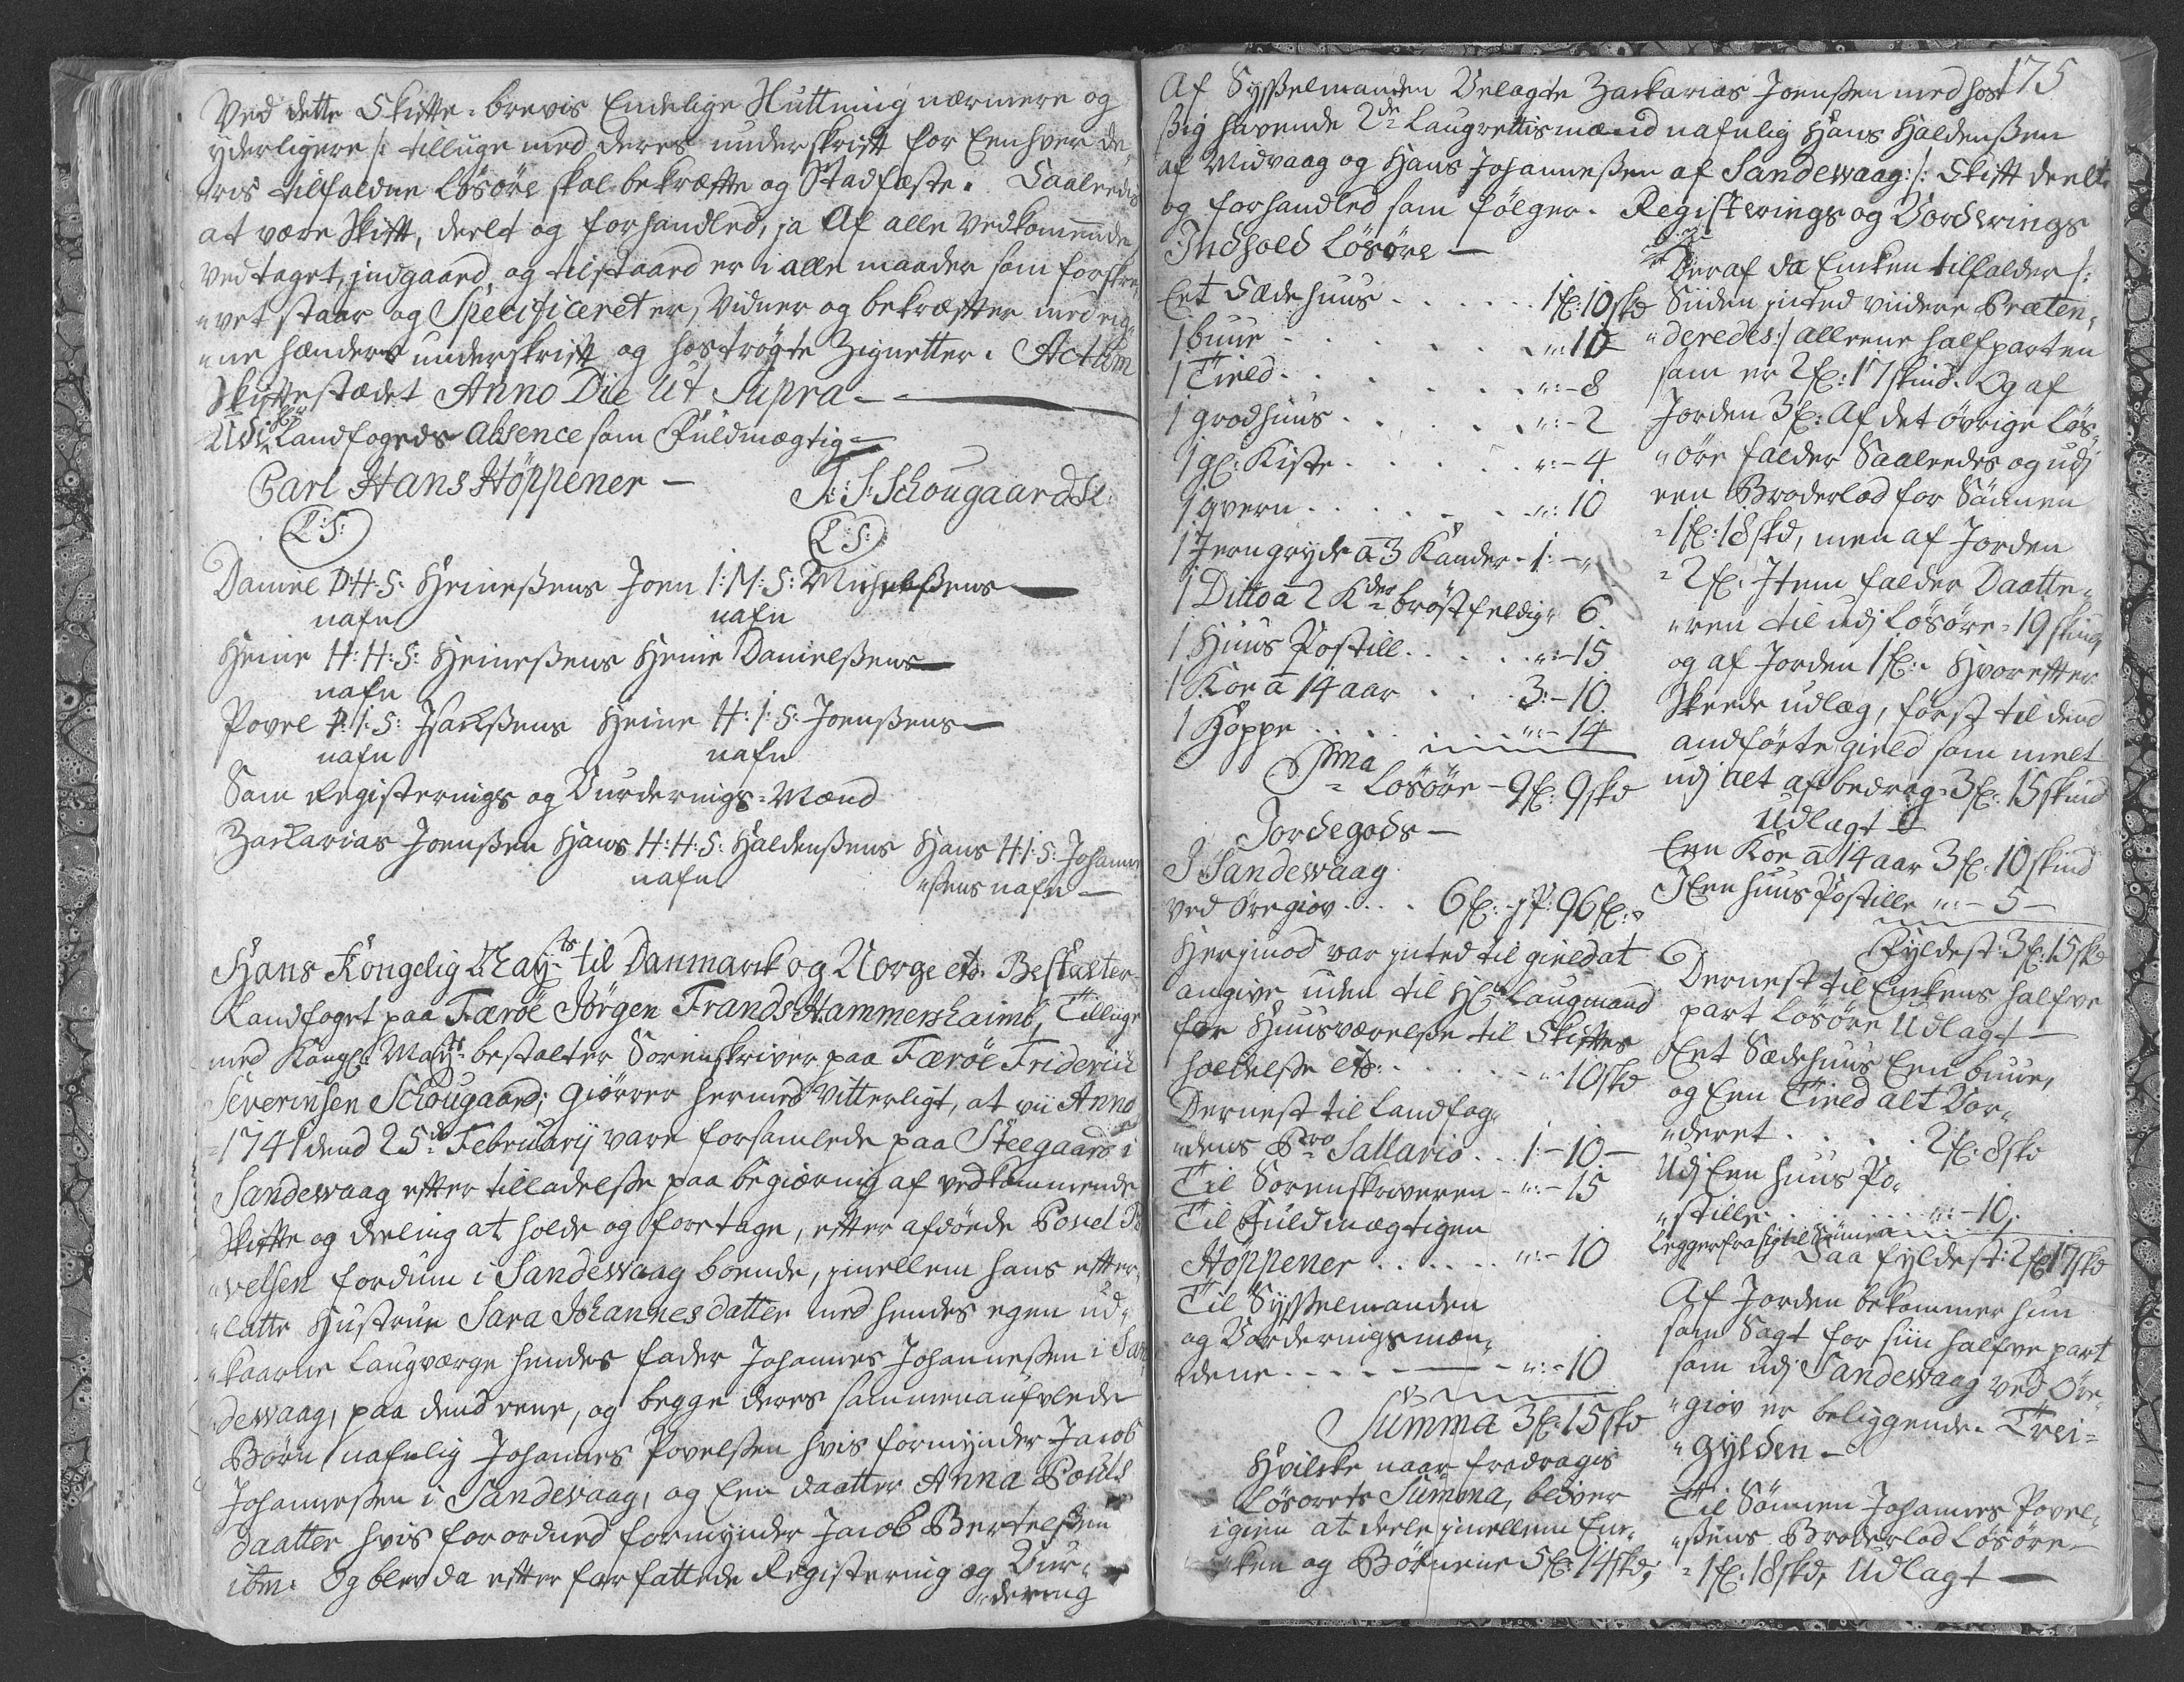 Ved dette Skifte-brevis Endelige Sluttning nærmere og
yderligere /: tilluge med deres underskrift for Eenhver de¸
¸ris tilfaldne Løsöre skal bekræfte og Stadfæste. Saaleedis
at være Skift, deelt og forhandled, ja Af alle Vedkommende
Vedtaget, indgaaed, og tilstaaed er i alle maader som forskre¸
¸vet staar og Specificeret er, Vidner og bekræfter med eig¸
¸ne hænders underskrift og hoströgte Zignetter. Actum
Skiftestædet Anno Die Ut Supra
Udi Hr Landfogeds Absence som Fuldmægtig
Carl Hans Höppener — F: S: Schougaard
L:S: L:S:
Daniel D:H:S: Heineßens Joen I:M:S: Michelßens
nafn nafn
Heine H:H:S: Heineßens Heine Danielßens
nafn
Povel P:I:S: Isachßens Heine H:I:S: Joenßens
nafn nafn
Som Registerings og Vurderings-Mænd
Zackarias Joenßen Hans H:H:S: Haldenßens Hans H:I:S: Johannes
nafn ¸ßens nafn —
Hans Kongelig Mayts til Danmarck og Norge etc. Bestalter
Landfoget paa Færöe Jörgen Frands Hammershaimb, Tillige
med Kongl: Mayts bestalter Sorenskriver paa Færöe Friderich
Severinsen Schougaard; Giörrer hermed Vitterligt, at vii Anno
1741 dend 25de Februarij vare forsamlede paa Steegaard i
Sandewaag efter tilladelße paa begiæring af vedkommende
Skifte og deeling at holde og foretage, efter afdöede Povel Po
¸velsen fordum i Sandewaag boende, imellem hans efter¸
¸latte Hustrue Sara Johannesdatter med hendes egen ud¸
¸kaarne Laugværge hendes fader Johannes Johanneßen i San
¸dewaag, paa dend eene, og begge deres sammenauflede
Börn nafnlig Johannes Povelßen hvis formynder Jacob
Johanneßen i Sandevaag, og Een daatter Anna Povels
daatter hvis forordned formynder Jacob Bertelßen
ibm: Og blev da efter forfattede Registering og Vur¸
¸dering
175
Af Syßelmanden Velagte Zackarias Joenßen med hos
ßig havende 2de Laugrettismænd nafnlig Hans Haldenßen
af Midvaag og Hans Johanneßen af Sandewaag :/: Skift deelt
og forhandled som fölger. Registerings og Vorderings
Indhold Løsöre —
Eet Sædehuus . . . 1 fl: 10 skd
1 buur . . . ": 10
1 Tield . . . ": - 8
1 grodhuus . . . ": - 2
1 gl: Kiste . . . ": - 4
1 qvern . . . ": 10
1 Jerngryde a 3 Kander - 1: - "
1 Ditto a 2 Kder bröstfeldig " 6
1 Huus Postill . . . ": - 15
1 Koe a 14 aar . . . 3: - 10
1 Hoppe . . . ": - 14
Sma Løsöre - 9 fl: 9 skd
Jordegods —
I Sandewaag
ved Öregiov . . . 6 fl: 96 fl:
Herimod var inted til gield at
angive uden til Hr Laugmand
for Huusværelße til Skiftes
holdelße etc: . . . 10 skd
Dernest til Landfog¸
¸dens Pro Sallario . . 1: - 10 —
Til Sorenskriveren - ": - 15
Til Fuldmægtigen
Höppener . . . ": - 10
Til Syßelmanden
og Vorderingsmæn¸
¸dene . . . ": - 10
Summa 3 fl: 15 skd
Hvilcke naar fradragis
Løsörets Summa, bliver
igien at deele imellem Enc¸
¸ken og Börnene 5 fl: 14 skd;
Deraf da Encken tilfalder /:
Siiden inted viidere Præten¸
¸deredes :/ alleene halfparten
som er 2 fl: 17 skind. Og af
Jorden 3 fl: Af det øvrige Løs¸
¸öre falder Saaleedes og udi
een Broderlod for Sönnen
1 fl: 18 skd, men af Jorden
2 fl: Item falder Daatte¸
¸ren til udj Løsöre 19 skind
og af Jorden 1 fl: Hvorefter
Skeede udlæg, först til dend
andförte gield som melt
udj alt afbedrag 3 fl: 15 skind
Udlagt
Een Koe a 14 aar 3 fl: 10 skind
I Een huus Postille ": - 5 —
Fyldest: 3 fl: 15 skd
Dernest til Enckens halfve
part Løsöre Udlagt —
Eet Sædehuus Een buur,
og Een Tield alt Vor¸
¸deret . . . 2 fl: 8 skd
Udj Een huus Po¸
¸stille . . . ": - 10,
Legger fra sig til Sönnen
Saa fyldest: 2 fl 17 skd
Af Jorden bekommer hun
som Sagt for siin halfve part
som udj Sandewaag ved Öre¸
¸giov er beliggende. Trei=
¸Gylden —
Til Sönnen Johannes Povel¸
¸ßens Broderlod Løsöre
1 fl: 18 skd, Udlagt —